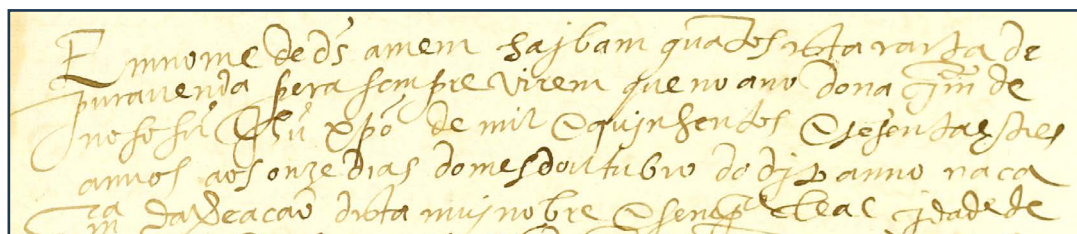 Em nome de ds amem sajbam quātos esta carta de
pura uenda pera sempre virem que no ano do naçimto de
noso sōr Jhū xpō de mil e quinhentos e sesenta e tres
annos aos onze dias do mes doutubro do djto anno na ca
ma da Vereacaõ desta muj nobre e senpre leal çidade de